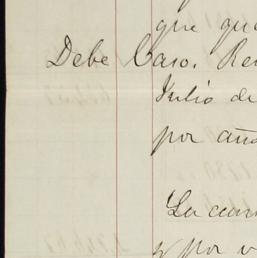 que qu
Debe Caso. Re
Julio de
por añ
La cu
y por v